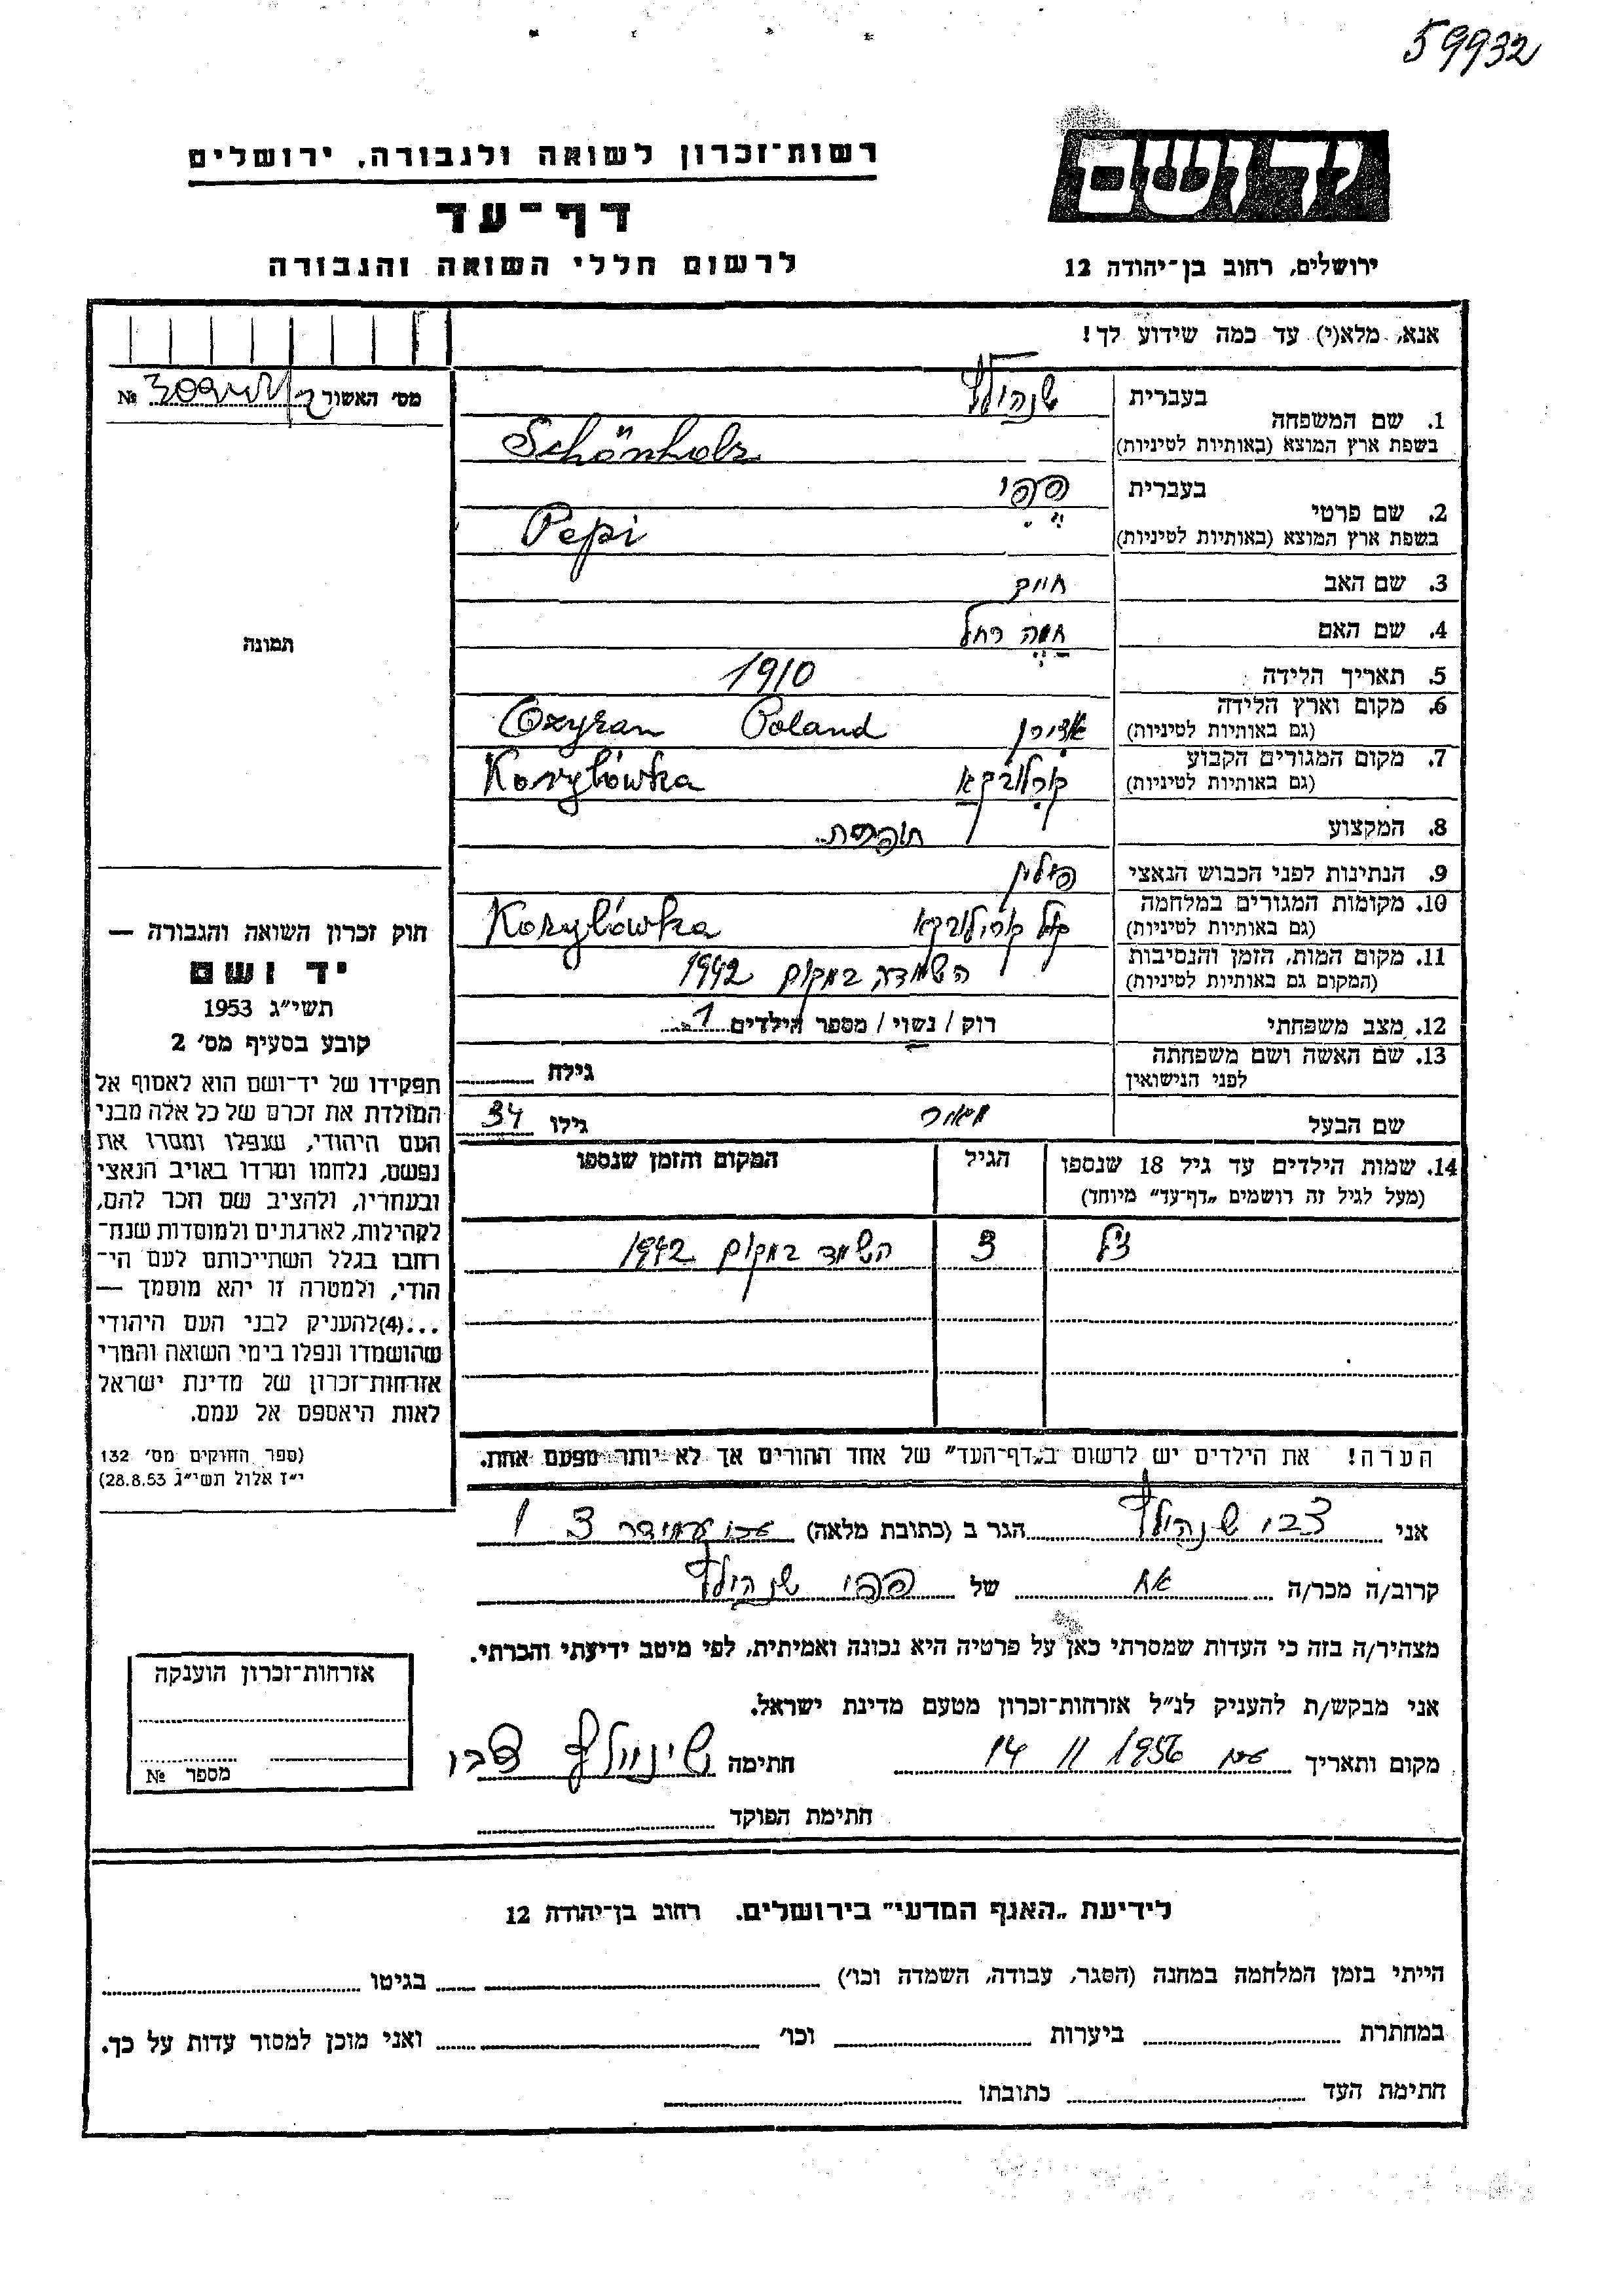 59932
יד ושם
רשות־זכרון לשואה ולגבורה, ירושלים
דף־עד
לרשום חללי השואה והגבורה
ירושלים, רחוב בן־יהודה 12
אנא, מלא(י) עד כמה שידוע לך!
מס׳ האשור № 
1. שם המשפחה בעברית שנהולץ
בשפת ארץ המוצא (באותיות לטיניות) Schönholz
2. שם פרטי בעברית פפי
בשפת ארץ המוצא (באותיות לטיניות) Pepi
3. שם האב חיים
4. שם האם חיה רחל
5. תאריך הלידה 1910
6. מקום וארץ הלידה
(גם באותיות לטיניות) Ozyran Poland
7. מקום המגורים הקבוע
(גם באותיות לטיניות) Korylówka
8. המקצוע תופרת
9. הנתינות לפני הכבוש הנאצי פולין
10. מקומות המגורים במלחמה
(גם באותיות לטיניות) Korylówka
11. מקום המות, הזמן והנסיבות
(המקום גם באותיות לטיניות) השמדה במקום 1942
12. מצב משפחתי רוק / נשוי / מספר הילדים 1
13. שם האשה ושם משפחתה
לפני הנישואין גילה
שם הבעל מאיר גילו 34
14. שמות הילדים עד גיל 18 שנספו הגיל המקום והזמן שנספו
(מעל לגיל זה רושמים „דף־עד” מיוחד)
3 השמד במקום 1942
הערה! את הילדים יש לרשום ב„דף־העד” של אחד ההורים אך לא יותר מפעם אחת.
תמונה
חוק זכרון השואה והגבורה —
יד ושם
תשי״ג 1953
קובע בסעיף מס׳ 2
תפקידו של יד־ושם הוא לאסוף אל
המולדת את זכרם של כל אלה מבני
העם היהודי, שנפלו ומסרו את
נפשם, נלחמו ומרדו באויב הנאצי
ובעוזריו, ולהציב שם וזכר להם,
לקהילות, לארגונים ולמוסדות שנח־
רבו בגלל השתייכותם לעם הי־
הודי, ולמטרה זו יהא מוסמך —
...(4)להעניק לבני העם היהודי
שהושמדו ונפלו בימי השואה והמרי
אזרחות־זכרון של מדינת ישראל
לאות היאספם אל עמם.
(ספר החוקים מס׳ 132
י״ז אלול תשי״ג 28.8.53)
אני צבי שנהולץ הגר ב (כתובת מלאה) עכו עמידר 3 1
קרוב/ה מכר/ה אח של פפי שנהולץ
מצהיר/ה בזה כי העדות שמסרתי כאן על פרטיה היא נכונה ואמיתית, לפי מיטב ידיעתי והכרתי.
אני מבקש/ת להעניק לנ״ל אזרחות־זכרון מטעם מדינת ישראל.
מקום ותאריך עכו 14 11 1956 חתימה שינהולץ צבי
חתימת הפוקד
אזרחות־זכרון הוענקה
מספר №
לידיעת „האגף המדעי” בירושלים. רחוב בן־יהודה 12
הייתי בזמן המלחמה במחנה (הסגר, עבודה, השמדה וכו׳) בגיטו
במחתרת ביערות וכו׳ ואני מוכן למסור עדות על כך.
חתימת העד כתובתו